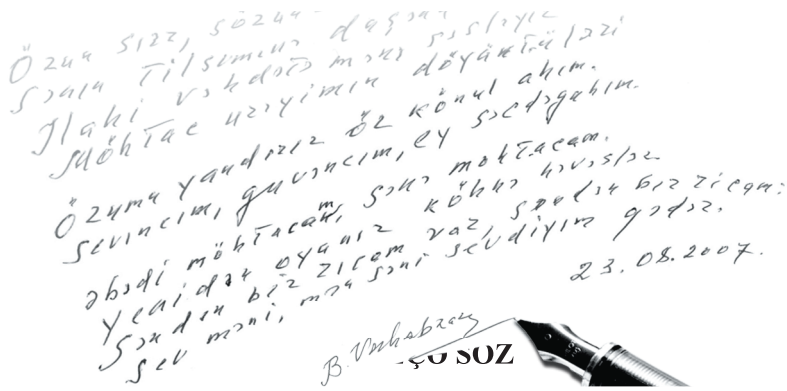 Özün
Sənin tilsiminə
İlahi vəhdətə məni səsləyir
Möhtac ürəyimin döyüntüləri
Özümü yandırır öz könül ahım.
Sevincim, güvəncim, ey səcdəgahım.
Əbədi möhtacam, sənə möhtacam.
Yenidən oyanır köhnə həvəslər.
Səndən bir ricam var, səndən bir ricam:
Sev məni, mən səni sevdiyim qədər.
23.08.2007.
B. Vahabzadə
SOZ